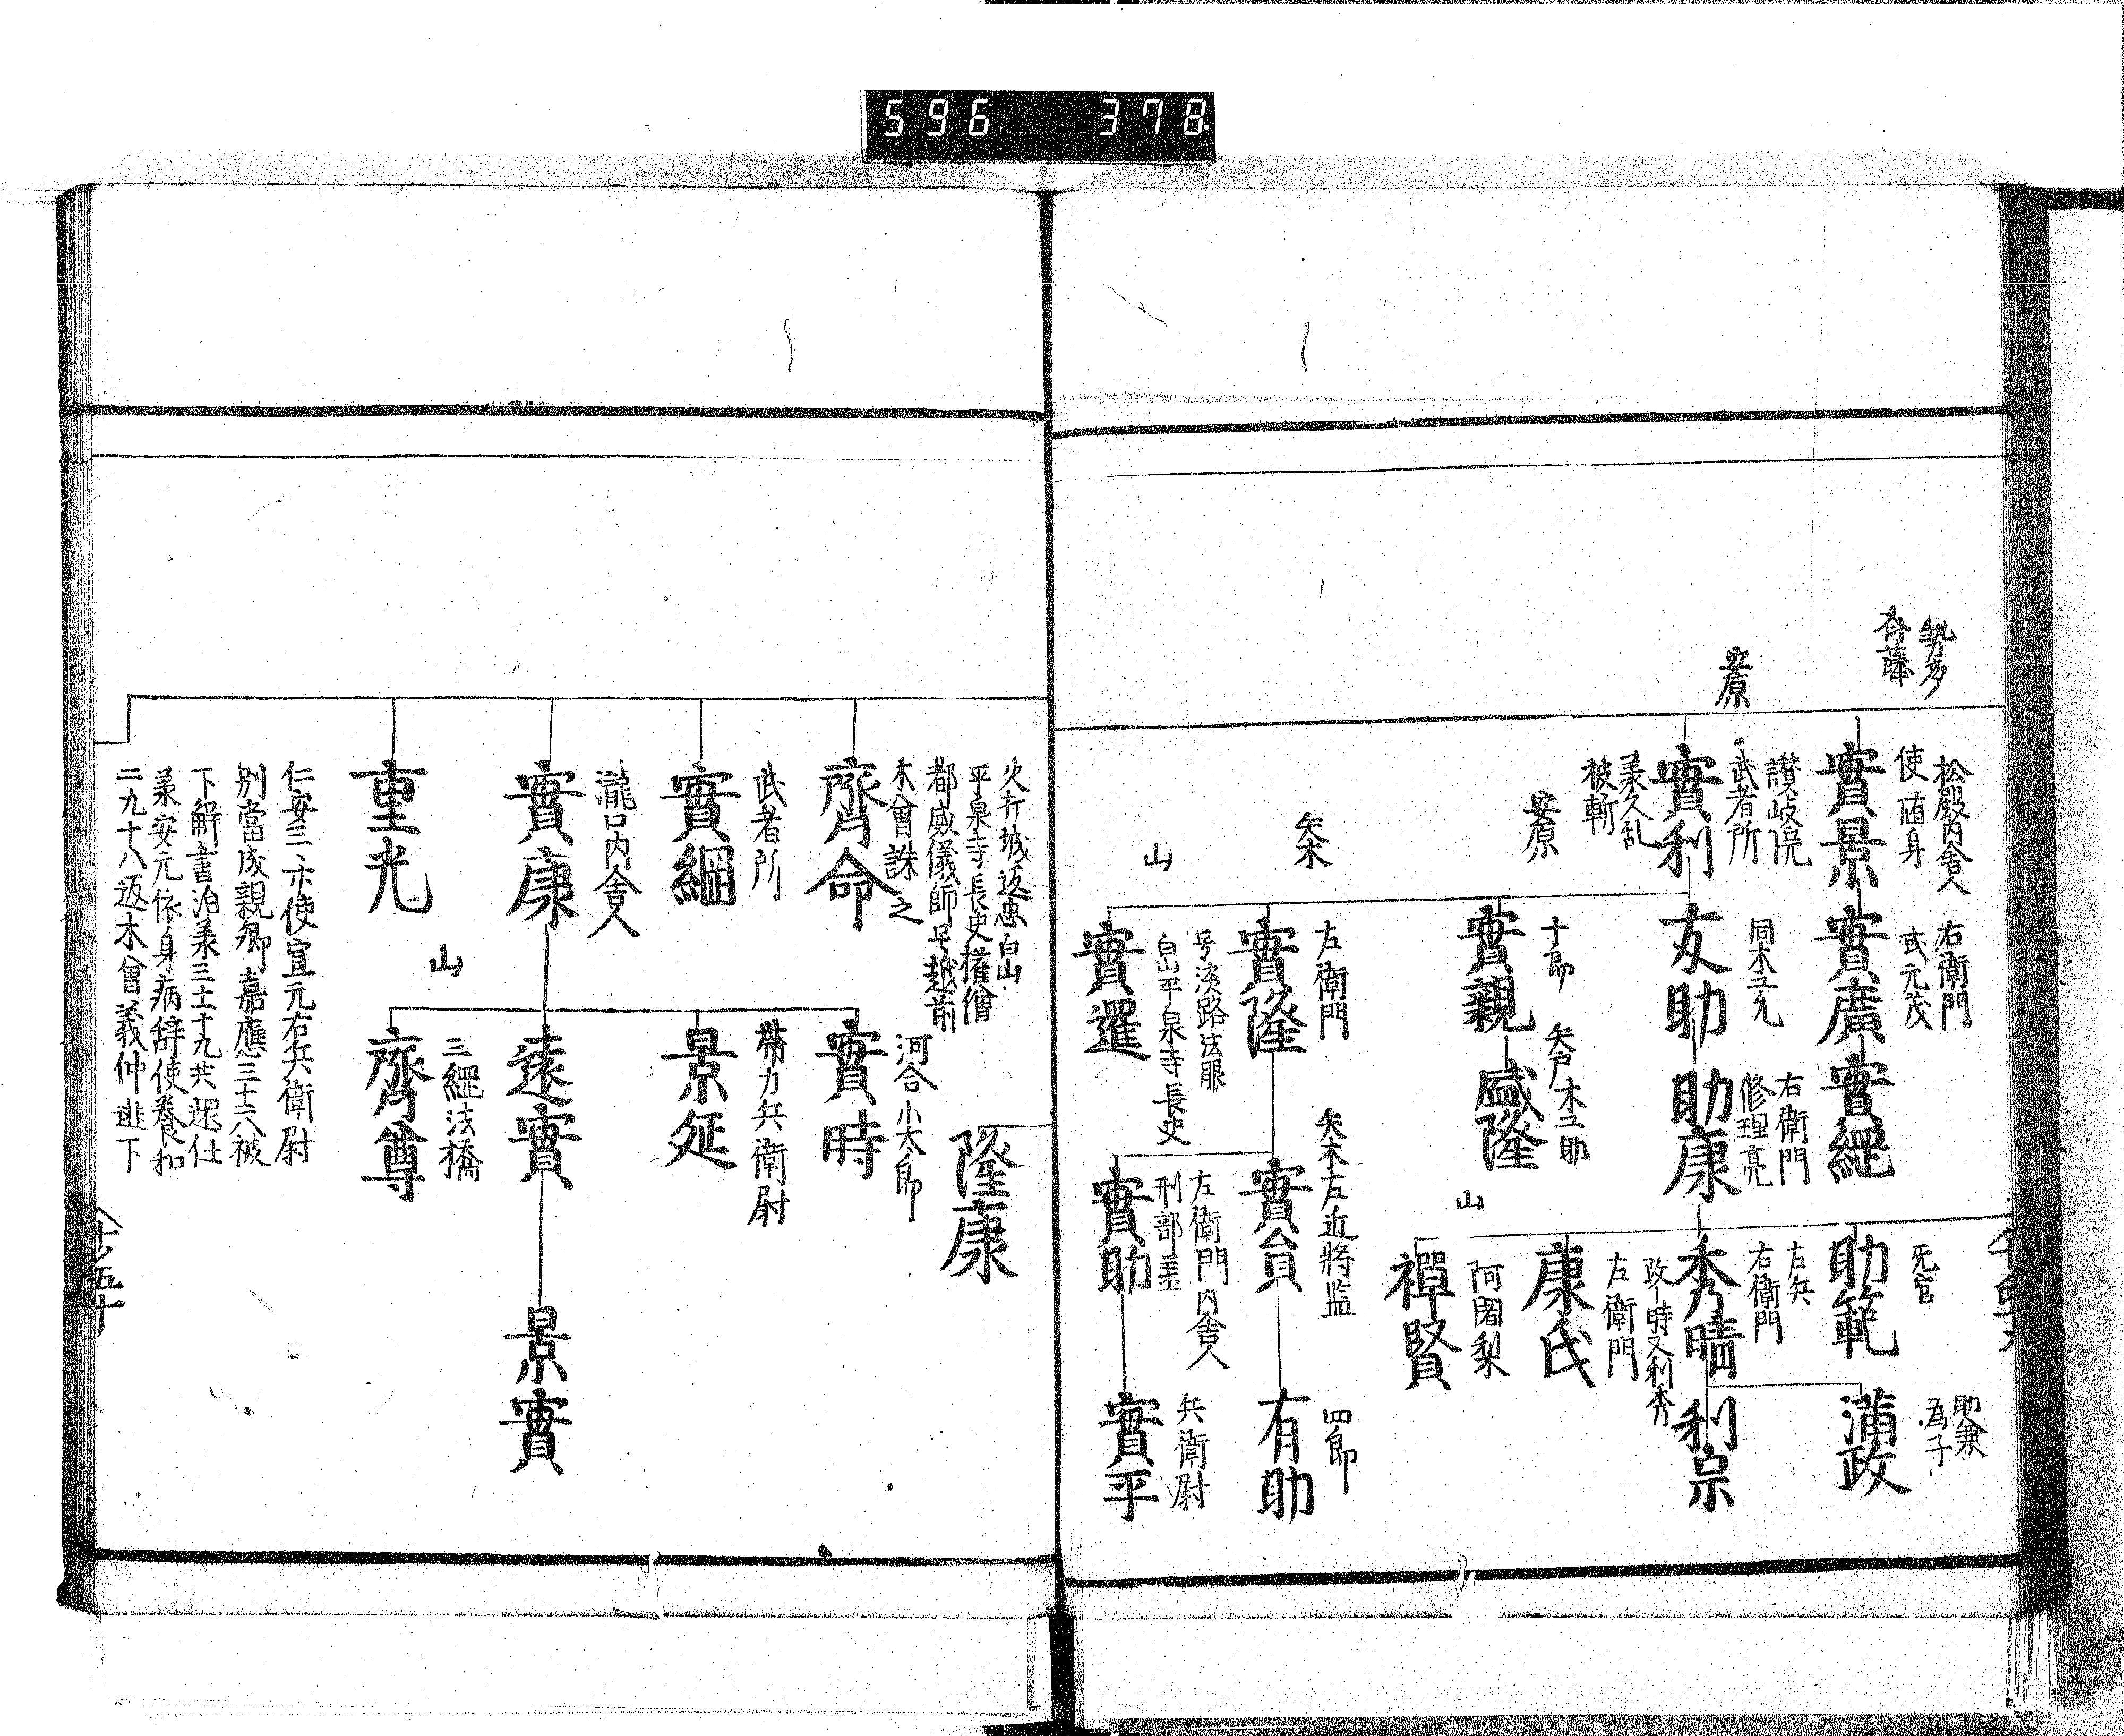 596 378
勢多
斎藤
松殿内舎人
使 随身
實景
右衛門
或元茂
實廣
實綱
安原
讃岐院
武者所
實利
承久乱
被斬
同木工允
友助
右衛門
修理亮
助康
无官
助範
助兼
為子
蒲政
左兵
右衛門
秀晴
改時又利秀
利宗
左衛門
康氏
山
阿闍梨
禪賢
安原
十郎
實親
矢戸木工助
盛隆
矢木
左衛門
實隆
矢木左近将監
實員
四郎
有助
山
号淡路法眼
白山平泉寺長史
實暹
左衛門内舎人
刑部丞
實助
兵衛尉
實平
隆康
火打城返忠白山
平泉寺長史権僧
都威儀師号越前
木曾誅之
齊命
河合小太郎
實時
武者所
實綱
帯刀兵衛尉
景延
瀧口内舎人
實康
遠實
景實
山
三綱法橋
齊尊
重光
仁安三 使宣元右兵衛尉
別當成親卿嘉應三十六被
下解書治承三十十九共還任
承安元依身病辞使養和
二九十八返木曾義仲逃下